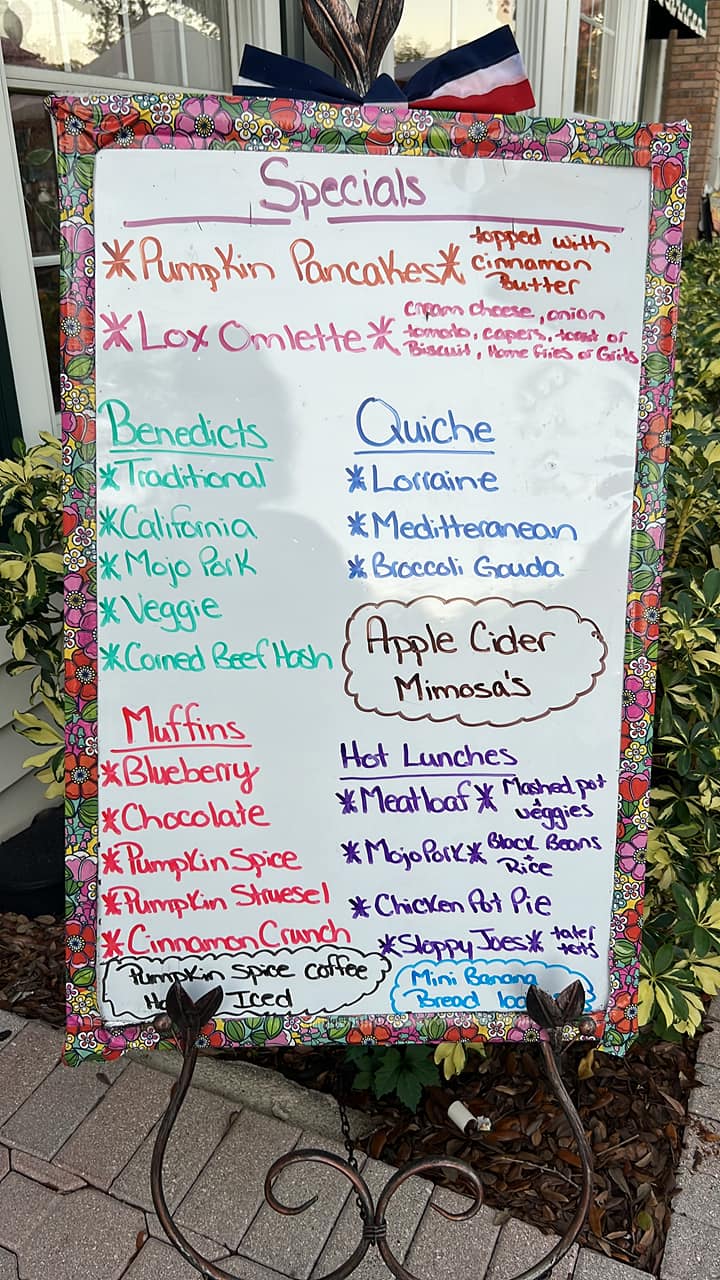 Specials
*Pumpkin Pancakes* topped with
cinnamon
Butter
*Lox Omlette* cream cheese, onion
tomato, capers, toast or
Biscuit, Home Fries or Grits
Benedicts
*Traditional
*California
*Mojo Pork
*Veggie
*Corned Beef Hash
Quiche
*Lorraine
*Meditteranean
*Broccoli Gouda
Apple Cider
Mimosa's
Muffins
*Blueberry
*Chocolate
*Pumpkin Spice
*Pumpkin Struesel
*Cinnamon Crunch
Hot Lunches
*Meatloaf* Mashed pot
+
veggies
*Mojo Pork* Black Beans
+
Rice
*Chicken Pot Pie
*Sloppy Joes* tater
tots
Pumpkin Spice coffee
Iced
Mini Banana
Bread